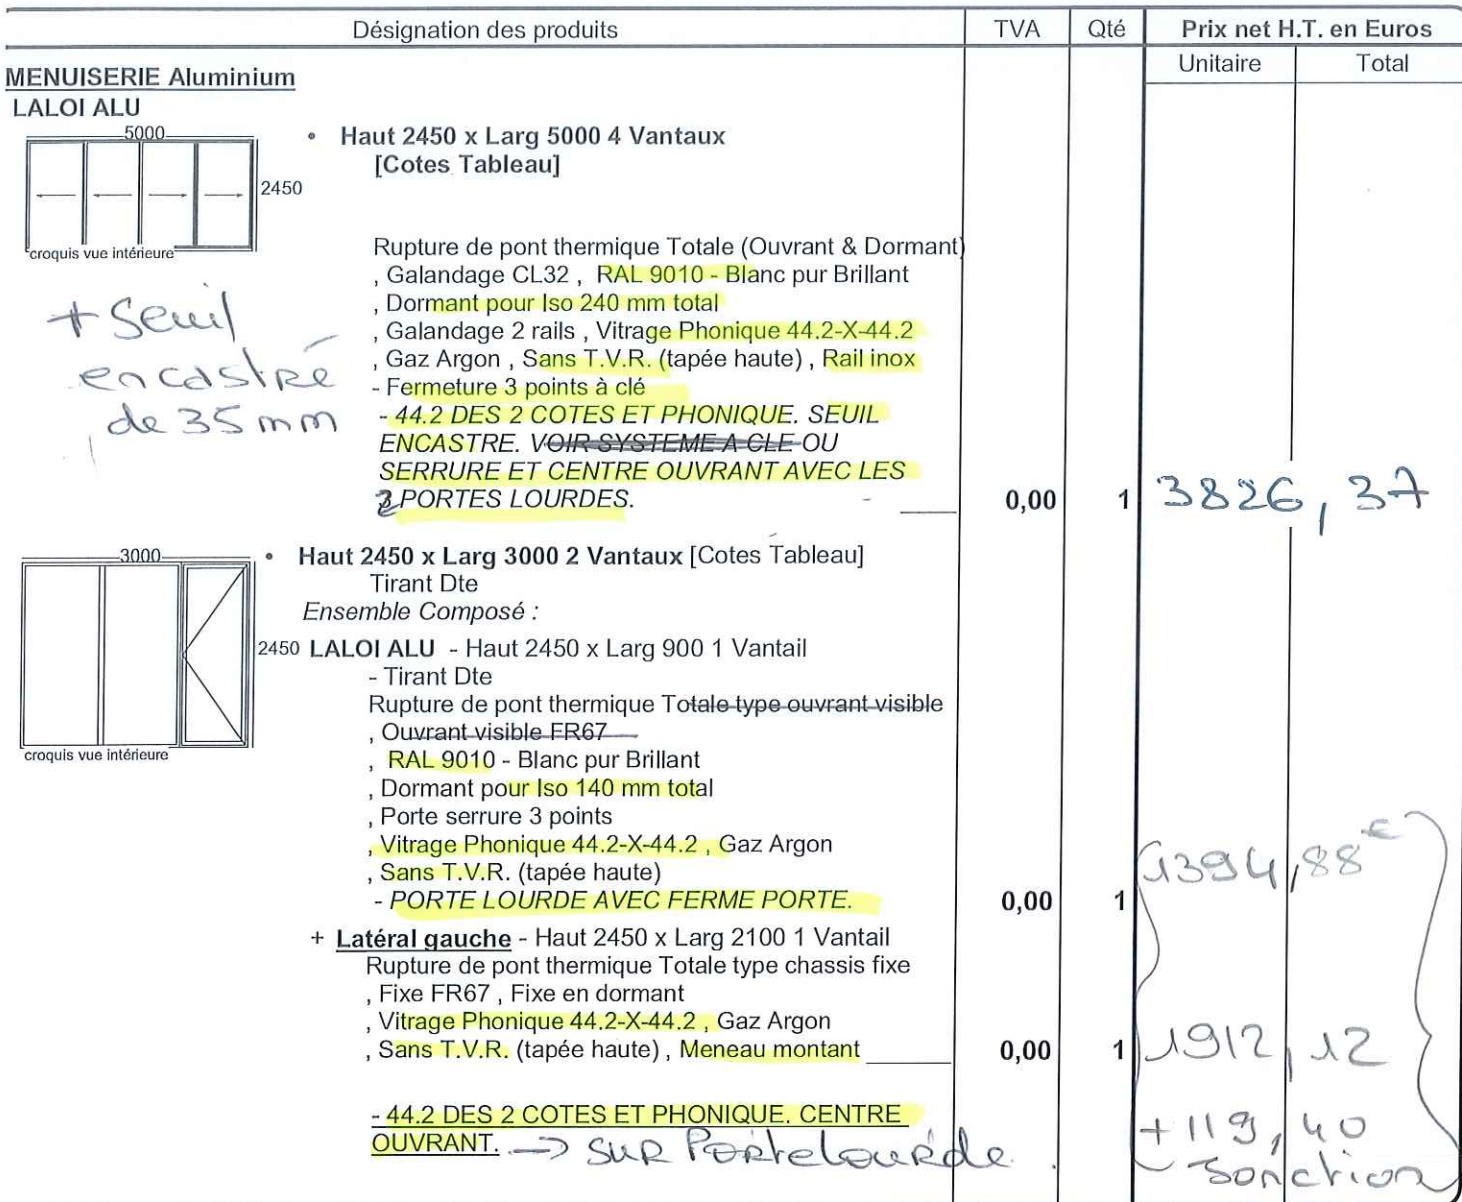 Désignation des produits TVA Qté Prix net H.T. en Euros
Unitaire Total
MENUISERIE Aluminium
LALOI ALU
5000
2450
croquis vue intérieure
• Haut 2450 x Larg 5000 4 Vantaux
[Cotes Tableau]
Rupture de pont thermique Totale (Ouvrant & Dormant)
, Galandage CL32 , RAL 9010 - Blanc pur Brillant
, Dormant pour Iso 240 mm total
, Galandage 2 rails , Vitrage Phonique 44.2-X-44.2
, Gaz Argon , Sans T.V.R. (tapée haute) , Rail inox
- Fermeture 3 points à clé
- 44.2 DES 2 COTES ET PHONIQUE. SEUIL
ENCASTRE. VOIR SYSTEME A CLE OU
SERRURE ET CENTRE OUVRANT AVEC LES
2 PORTES LOURDES. 0,00 1 3826,37
+ Seuil
encastré
de 35 mm
3000
2450
croquis vue intérieure
• Haut 2450 x Larg 3000 2 Vantaux [Cotes Tableau]
Tirant Dte
Ensemble Composé :
LALOI ALU - Haut 2450 x Larg 900 1 Vantail
- Tirant Dte
Rupture de pont thermique Totale type ouvrant visible
, Ouvrant visible FR67
, RAL 9010 - Blanc pur Brillant
, Dormant pour Iso 140 mm total
, Porte serrure 3 points
, Vitrage Phonique 44.2-X-44.2 , Gaz Argon
, Sans T.V.R. (tapée haute) 1394,88€
- PORTE LOURDE AVEC FERME PORTE. 0,00 1
+ Latéral gauche - Haut 2450 x Larg 2100 1 Vantail
Rupture de pont thermique Totale type chassis fixe
, Fixe FR67 , Fixe en dormant
, Vitrage Phonique 44.2-X-44.2 , Gaz Argon
, Sans T.V.R. (tapée haute) , Meneau montant 0,00 1 1912,12
- 44.2 DES 2 COTES ET PHONIQUE. CENTRE
OUVRANT. → SUR Porte Lourde.
+ 119,40
Jonction